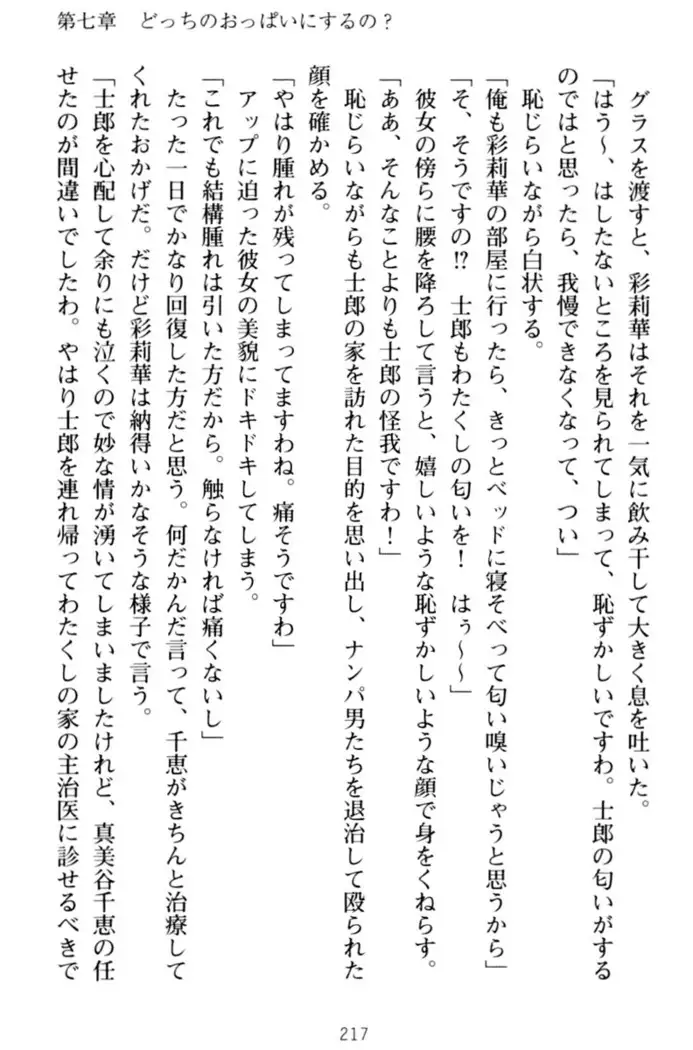 第七章　どっちのおっぱいにするの？
　グラスを渡すと、彩莉華はそれを一気に飲み干して大きく息を吐いた。
「はう〜、はしたないところを見られてしまって、恥ずかしいですわ。士郎の匂いがする
のではと思ったら、我慢できなくなって、つい」
　恥じらいながら白状する。
「俺も彩莉華の部屋に行ったら、きっとベッドに寝そべって匂い嗅いじゃうと思うから」
「そ、そうですの!?　士郎もわたくしの匂いを！　はぅ〜〜」
　彼女の傍らに腰を降ろして言うと、嬉しいような恥ずかしいような顔で身をくねらす。
「ああ、そんなことよりも士郎の怪我ですわ！」
　恥じらいながらも士郎の家を訪れた目的を思い出し、ナンパ男たちを退治して殴られた
顔を確かめる。
「やはり腫れが残ってしまってますわね。痛そうですわ」
　アップに迫った彼女の美貌にドキドキしてしまう。
「これでも結構腫れは引いた方だから。触らなければ痛くないし」
　たった一日でかなり回復した方だと思う。何だかんだ言って、千恵がきちんと治療して
くれたおかげだ。だけど彩莉華は納得いかなそうな様子で言う。
「士郎を心配して余りにも泣くので妙な情が湧いてしまいましたけれど、真美谷千恵の任
せたのが間違いでしたわ。やはり士郎を連れ帰ってわたくしの家の主治医に診せるべきで
217